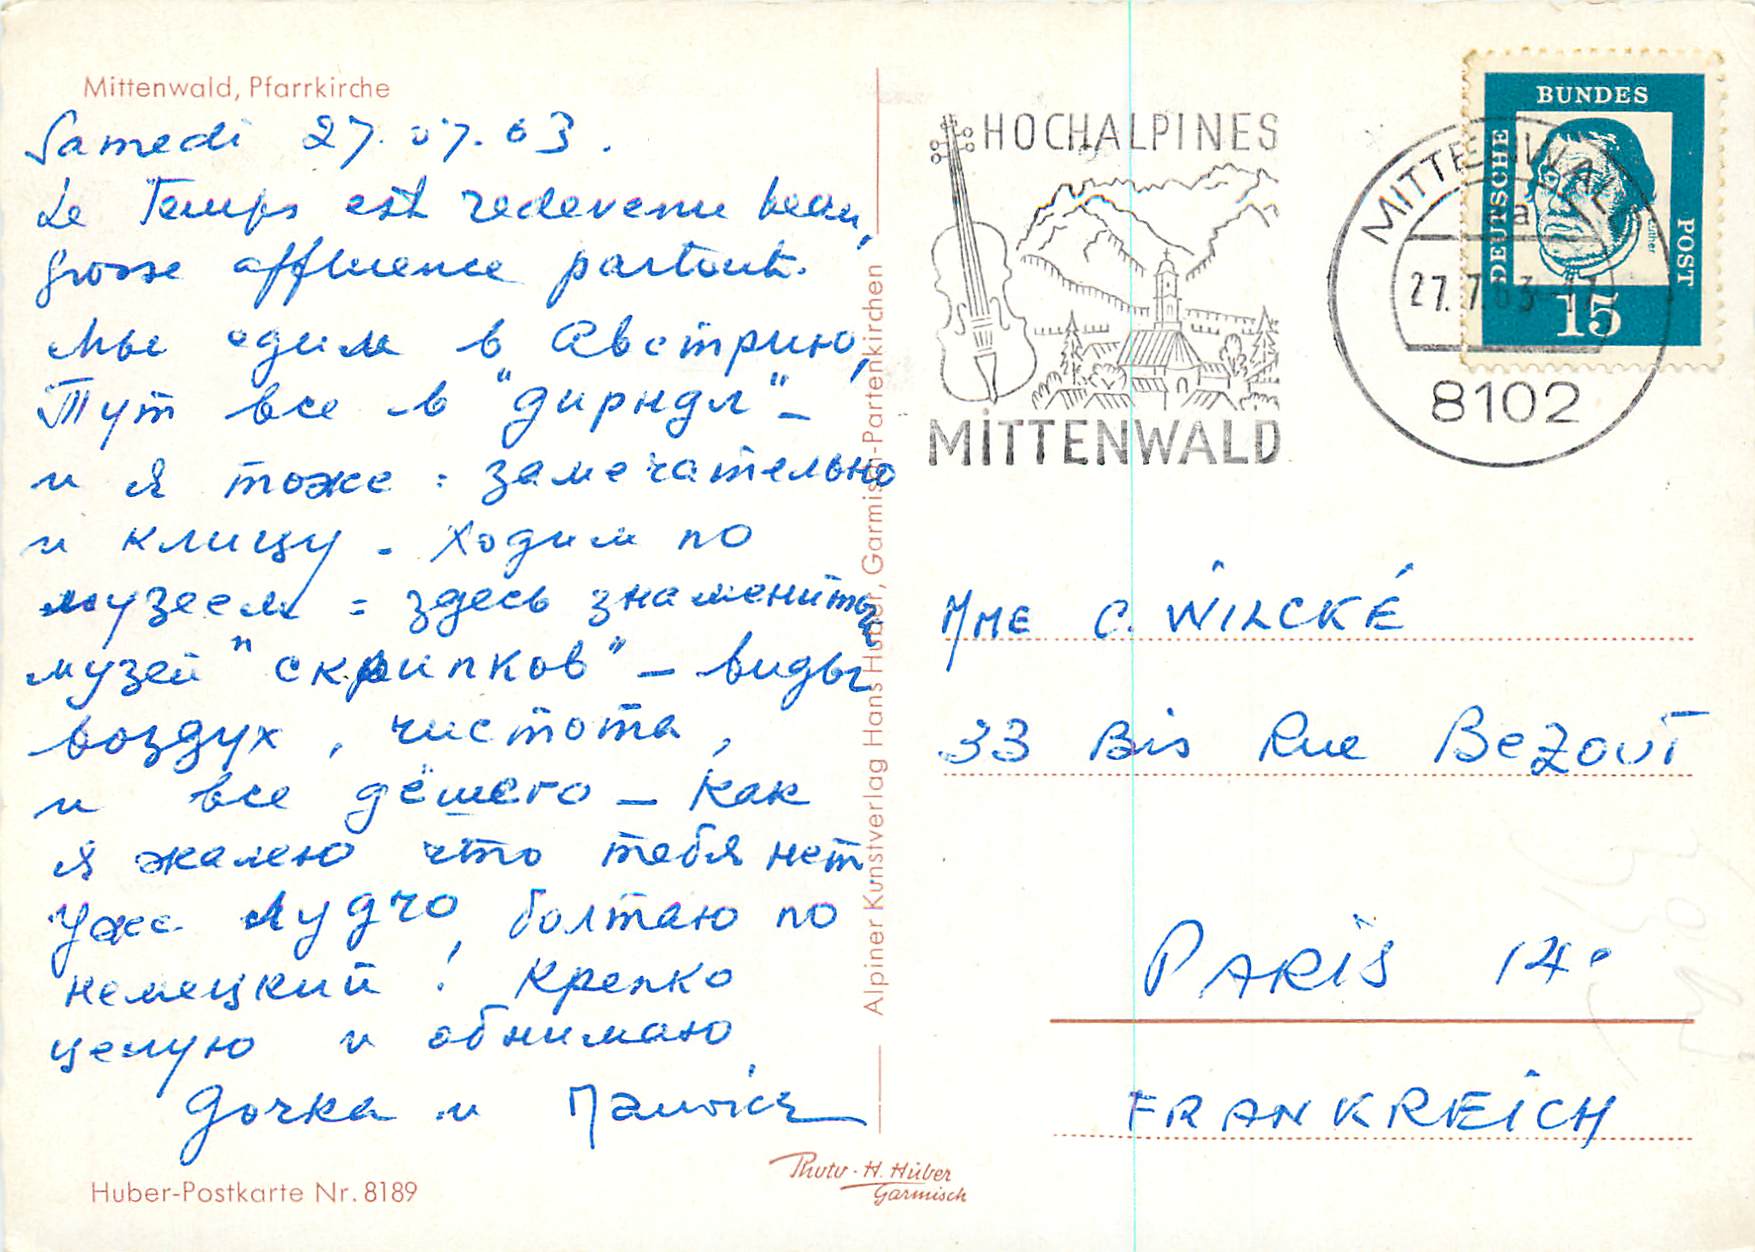 Mittenwald, Pfarrkirche
Samedi 27.07.63.
Le Temps est redevenu beau,
grosse affluence partout.
Мы едим в Австрию,
Тут все в "дирндл" –
и я тоже : замечательно
и к лицу – Ходим по
музеем = здесь знаменитый
музей "скрипков" – виды
воздух, чистота,
и все дёшего – Как
я жалею что тебя нет
уже лудчо, болтаю по
немецкий ! Крепко
целую и обнимаю
Дочка и
Huber-Postkarte Nr. 8189
Alpiner Kunstverlag Hans Huber, Garmisch-Partenkirchen
Photo - H. Huber
Garmisch
HOCHALPINES
MITTENWALD
MITTENWALD
a
27.7.63-17
8102
BUNDES
DEUTSCHE
POST
Luther
15
MME C. WILCKÉ
33 Bis Rue BeZOUT
PARIS 14e
FRANKREICH